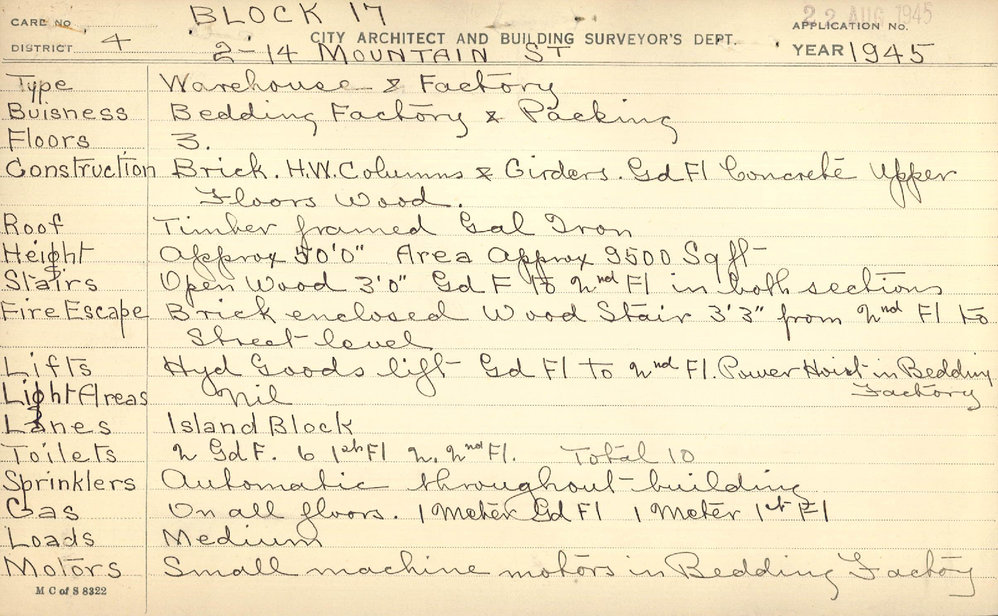 CARD NO BLOCK 17 22 AUG 1945
APPLICATION No.
DISTRICT 4 CITY ARCHITECT AND BUILDING SURVEYOR'S DEPT. YEAR 1945
2-14 MOUNTAIN ST
Type Warehouse & Factory
Buisness Bedding Factory & Packing
Floors 3.
Construction Brick. H.W. Columns & Girders. Gd Fl Concrete Upper
Floors Wood.
Roof Timber framed Gal Iron
Height Approx 50'0" Area Approx 9500 Sq ft
Stairs Open Wood 3'0" Gd F to 2nd Fl in both sections
Fire Escape Brick enclosed Wood Stair 3'3" from 2nd Fl to
Street level
Lifts Hyd Goods lift Gd Fl to 2nd Fl. Power Hoist in Bedding
Factory
Light Areas Nil
Lanes Island Block
Toilets 2 Gd F. 6 1st Fl 2. 2nd Fl. Total 10
Sprinklers Automatic throughout building
Gas On all floors. 1 Meter Gd Fl 1 Meter 1st Fl
Loads Medium
Motors Small machine motors in Bedding Factory
M C of S 8322